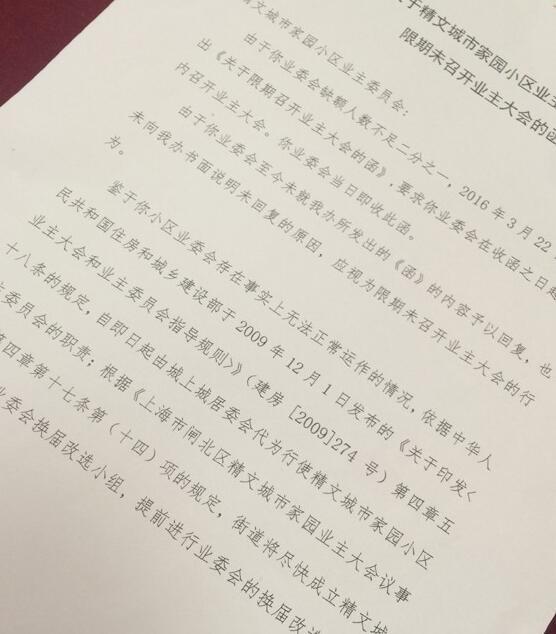 关于精文城市家园小区业主
限期未召开业主大会的函
精文城市家园小区业主委员会：
由于你业委会缺额人数不足二分之一，2016年3月22
出《关于限期召开业主大会的函》，要求你业委会在收函之日起
内召开业主大会。你业委会当日即收此函。
由于你业委会至今未就我办所发出的《函》的内容予以回复，也
未向我办书面说明未回复的原因，应视为限期未召开业主大会的行
为。
鉴于你小区业委会存在事实上无法正常运作的情况，依据中华人
民共和国住房和城乡建设部于2009年12月1日发布的《关于印发<
业主大会和业主委员会指导规则>》（建房[2009]274号）第四章五
十八条的规定，自即日起由城上城居委会代为行使精文城市家园小区
主委员会的职责；根据《上海市闸北区精文城市家园业主大会议事
第四章第十七条第（十四）项的规定，街道将尽快成立精文城
业委会换届改选小组，提前进行业委会的换届改选